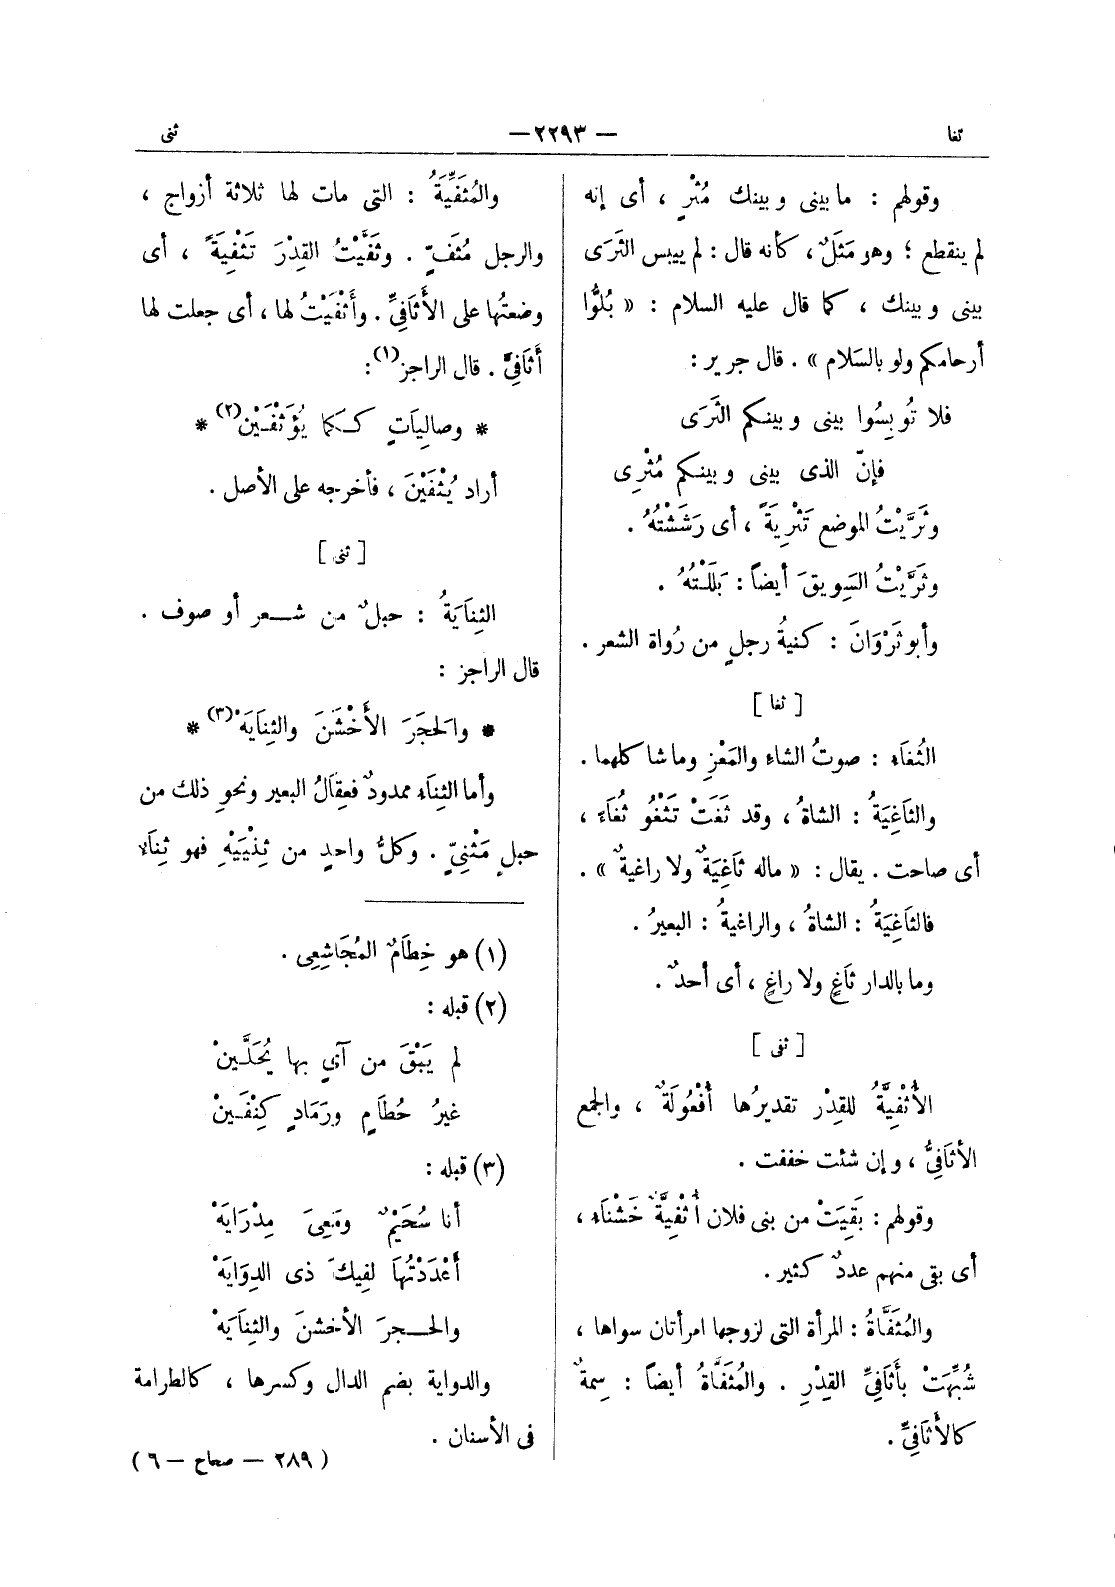 ثغا
— ٢٢٩٣ —
ثنى
وقولهم : ما بينى وبينك مُثْرٍ ، أى إنه
لم ينقطع ؛ وهو مَثَلٌ ، كأنه قال : لم ييبس الثَرَى
بينى وبينك ، كما قال عليه السلام : « بُلُّوا
أرحامكم ولو بالسَلام » . قال جرير :
فلا تُوبِسُوا بينى وبينكم الثَرَى
فإنّ الذى بينى وبينكم مُثْرِى
وثَرَّيْتُ الموضع تَثْرِيَةً ، أى رَشَشْتُهُ .
وثَرَّيْتُ السَوِيقَ أيضاً : بَلَلْتُهُ .
وأبو ثَرْوَانَ : كنيةُ رجلٍ من رُواة الشعر .
[ ثغا ]
الثُغَاء : صوتُ الشاءِ والمَعْزِ وما شاكلهما .
والثَاغِيَةُ : الشاةُ ، وقد ثَغَتْ تَثْغُو ثُغَاءً ،
أى صاحت . يقال : « ماله ثَاغِيَةٌ ولا راغيةٌ » .
فالثَاغِيَةُ : الشاةُ ، والراغيةُ : البعيرُ .
وما بالدار ثَاغٍ ولا راغٍ ، أى أحدٌ .
[ ثفى ]
الأُثْفِيَّةُ للقِدْر تقديرُها أُفْعُولَةٌ ، والجمع
الأثَافِىُّ ، وإن شئت خففت .
وقولهم : بَقِيَتْ من بنى فلان أُثْفِيَّةٌ خَشْنَاء ،
أى بقى منهم عددٌ كثير .
والمُثَفَّاةُ : المرأة التى لزوجها امرأتان سواها ،
شُبِّهَتْ بأَثَافِىِّ القِدْرِ . والمُثَفَّاةُ أيضاً : سِمةٌ
كالأثَافِىِّ .
والمُثَفِّيَةُ : التى مات لها ثلاثة أزواج ،
والرجل مُثَفٍّ . وثَفَّيْتُ القِدْرَ تَثْفِيَةً ، أى
وضعتُها على الأَثَافِىِّ . وأَثْفَيْتُ لها ، أى جعلت لها
أَثَافِىَّ . قال الراجز(١) :
* وصالِيَاتٍ كَكَما يُؤَثْفَيْن(٢) *
أراد يُثْفَيْنَ ، فأخرجه على الأصل .
[ ثنى ]
الثِنَايَةُ : حبلٌ من شعر أو صوف .
قال الراجز :
* والحَجَرَ الأَخْشَنَ والثِنَايَهْ(٣) *
وأما الثِنَاء ممدودٌ فعِقَالُ البعير ونحوِ ذلك من
حبلٍ مَثْنِىٍّ . وكلُّ واحدٍ من ثِنْيَيْهِ فهو ثِنَاءٌ
(١) هو خِطَامٌ المُجَاشِعِى .
(٢) قبله :
لم يَبْقَ من آىٍ بها يُحَلَّيْنْ
غيرُ حُطَامٍ ورَمَادٍ كِنْفَيْنْ
(٣) قبله :
أنا سُحَيْمٌ ومَعِىَ مِدْرَايَهْ
أَعْدَدْتُهَا لفِيكَ ذى الدِوَايَهْ
والحجرَ الأخشنَ والثِنَايَهْ
والدواية بضم الدال وكسرها ، كالطرامة
فى الأسنان .
( ٢٨٩ — صحاح — ٦ )